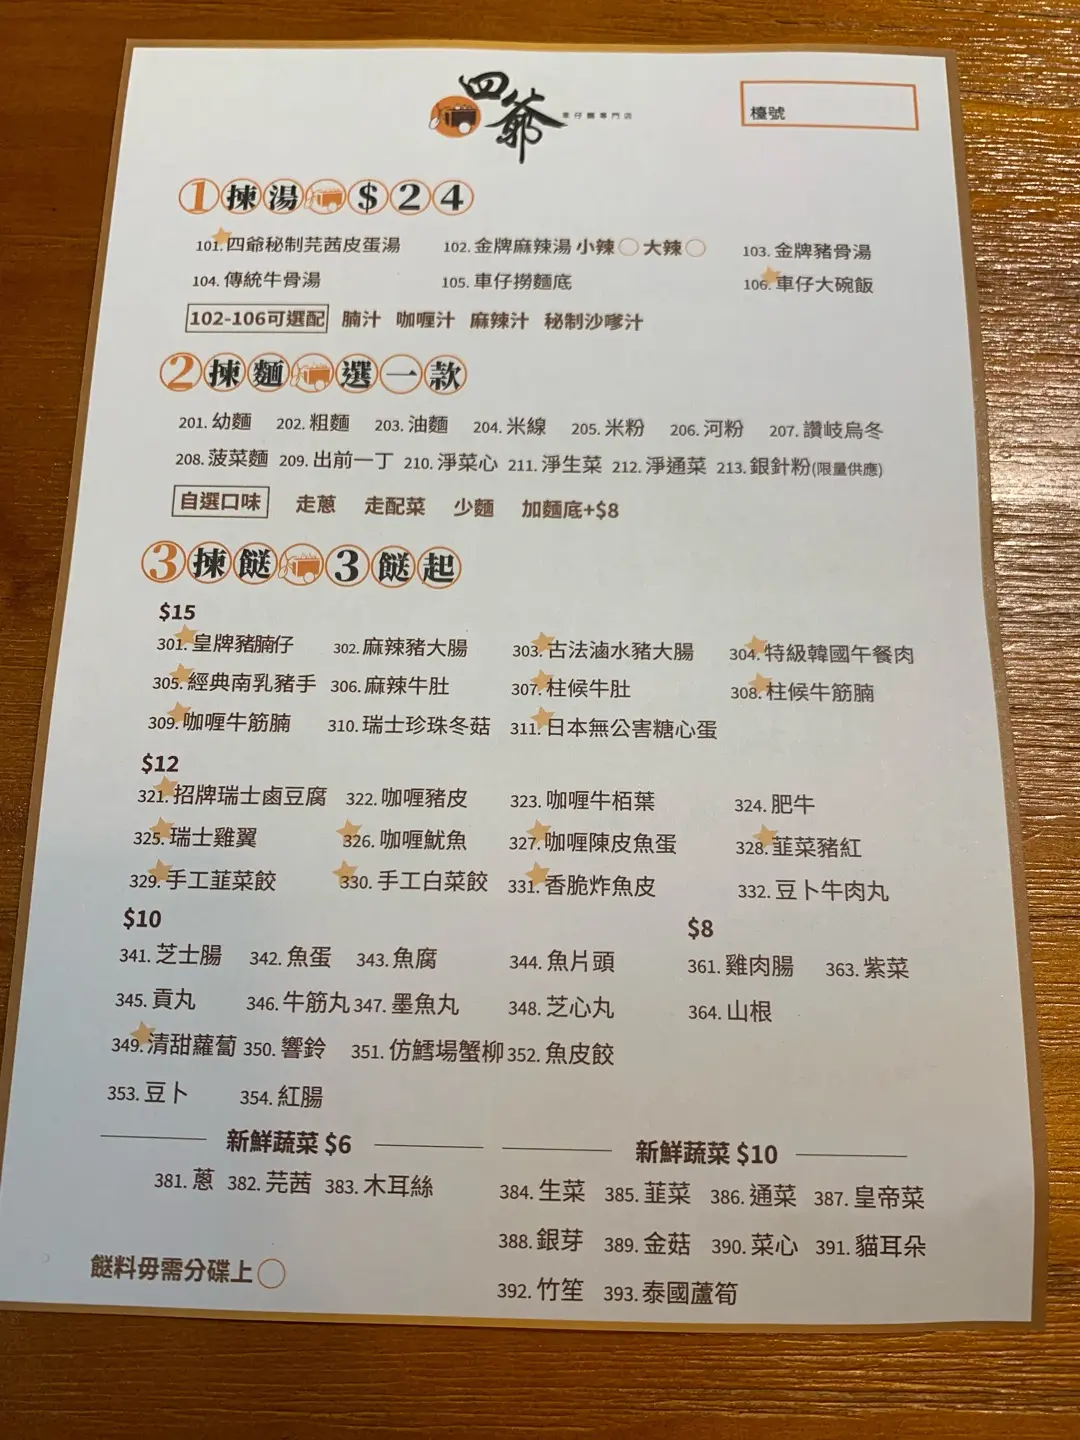 四爺 車仔麵專門店
檯號
1 揀湯 $24
101. 四爺秘制芫茜皮蛋湯 102. 金牌麻辣湯 小辣 大辣 103. 金牌豬骨湯
104. 傳統牛骨湯 105. 車仔撈麵底 106. 車仔大碗飯
102-106可選配 腩汁 咖喱汁 麻辣汁 秘制沙嗲汁
2 揀麵 選一款
201. 幼麵 202. 粗麵 203. 油麵 204. 米線 205. 米粉 206. 河粉 207. 讚岐烏冬
208. 菠菜麵 209. 出前一丁 210. 淨菜心 211. 淨生菜 212. 淨通菜 213. 銀針粉(限量供應)
自選口味 走蔥 走配菜 少麵 加麵底+$8
3 揀餸 3餸起
$15
301. 皇牌豬腩仔 302. 麻辣豬大腸 303. 古法滷水豬大腸 304. 特級韓國午餐肉
305. 經典南乳豬手 306. 麻辣牛肚 307. 柱候牛肚 308. 柱候牛筋腩
309. 咖喱牛筋腩 310. 瑞士珍珠冬菇 311. 日本無公害糖心蛋
$12
321. 招牌瑞士鹵豆腐 322. 咖喱豬皮 323. 咖喱牛栢葉 324. 肥牛
325. 瑞士雞翼 326. 咖喱魷魚 327. 咖喱陳皮魚蛋 328. 韮菜豬紅
329. 手工韮菜餃 330. 手工白菜餃 331. 香脆炸魚皮 332. 豆卜牛肉丸
$10 $8
341. 芝士腸 342. 魚蛋 343. 魚腐 344. 魚片頭 361. 雞肉腸 363. 紫菜
345. 貢丸 346. 牛筋丸 347. 墨魚丸 348. 芝心丸 364. 山根
349. 清甜蘿蔔 350. 響鈴 351. 仿鱈場蟹柳 352. 魚皮餃
353. 豆卜 354. 紅腸
新鮮蔬菜 $6 新鮮蔬菜 $10
381. 蔥 382. 芫茜 383. 木耳絲 384. 生菜 385. 韮菜 386. 通菜 387. 皇帝菜
388. 銀芽 389. 金菇 390. 菜心 391. 貓耳朵
餸料毋需分碟上 392. 竹笙 393. 泰國蘆筍